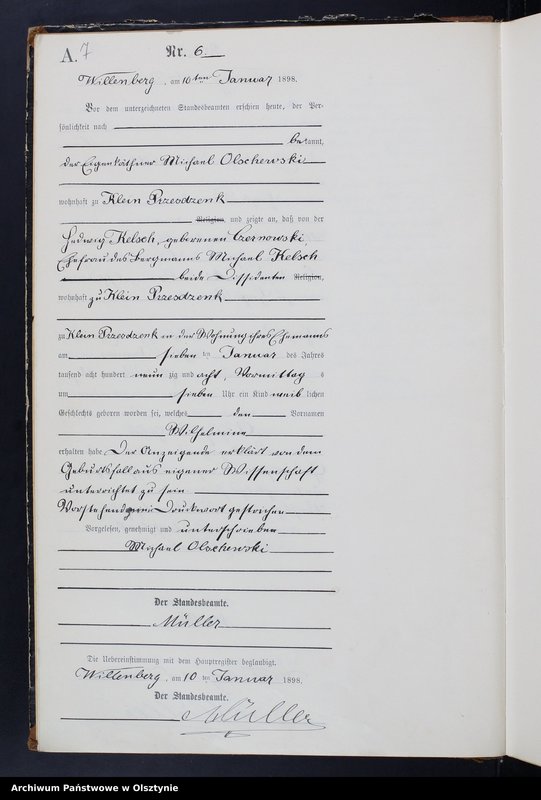 A. 7 Nr. 6
Willenberg, am 10 ten Januar 1898.
Vor dem unterzeichneten Standesbeamten erschien heute, der Per-
sönlichkeit nach
bekannt,
der Eigenkäthner Michael Olschewski
wohnhaft zu Klein Przesdzenk
Religion, und zeigte an, daß von der
Hedwig Kelsch, geborenen Czernowski,
Ehefrau des Bergmanns Michael Kelsch
beide Dissidenten Religion,
wohnhaft zu Klein Przesdzenk
zu Klein Przesdzenk in der Wohnung ihres Ehemanns
am sieben ten Januar des Jahres
tausend acht hundert neun zig und acht, Vormittag s
um sieben Uhr ein Kind weib lichen
Geschlechts geboren worden sei, welches den Vornamen
Wilhelmine
erhalten habe. Der Anzeigende erklärt von dem
Geburtsfall aus eigener Wissenschaft
unterrichtet zu sein
Vorstehend Druckwort gestrichen
Vorgelesen, genehmigt und unterschrieben
Michael Olschewski
Der Standesbeamte.
Müller
Die Uebereinstimmung mit dem Hauptregister beglaubigt.
Willenberg, am 10 ten Januar 1898.
Der Standesbeamte.
Müller
Archiwum Państwowe w Olsztynie